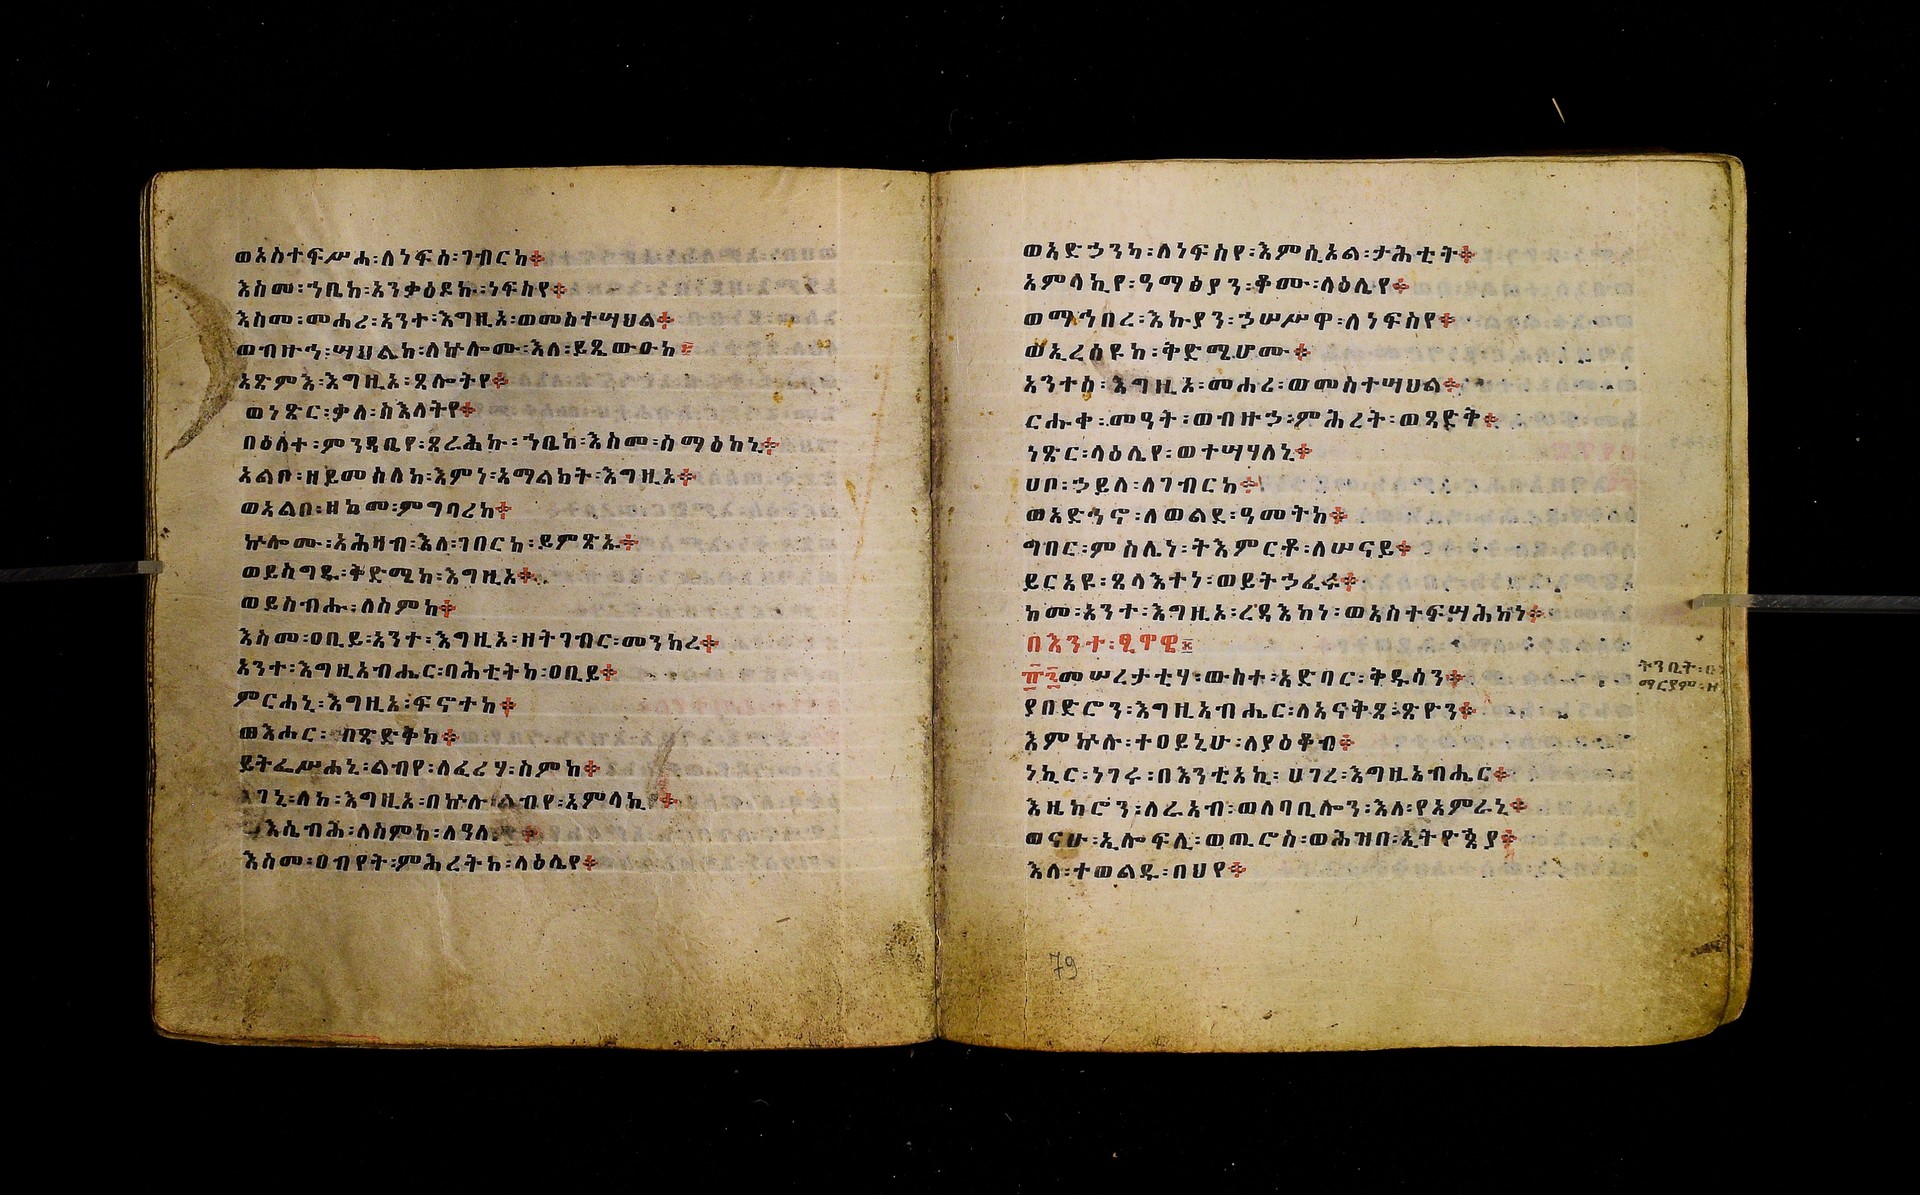 ወአስተፍሥሐ፡ለነፍሰ፡ገብርከ።
እስመ፡ኀቤከ፡አንቃዕዶኩ፡ነፍስየ።
እስመ፡መሐሪ፡አንተ፡እግዚኦ፡ወመስተሣህል።
ወብዙኅ፡ሣህልከ፡ለኵሎሙ፡እለ፡ይጼውዑከ፤
አጽምእ፡እግዚኦ፡ጸሎትየ።
ወነጽር፡ቃለ፡ስእለትየ።
በዕለተ፡ምንዳቤየ፡ጸራሕኩ፡ኀቤከ፡እስመ፡ሰማዕከኒ።
አልቦ፡ዘይመስለከ፡እምነ፡አማልክት፡እግዚኦ።
ወአልቦ፡ዘከመ፡ምግባሪከ።
ኵሎሙ፡አሕዛብ፡እለ፡ገበርከ፡ይምጽኡ።
ወይስግዱ፡ቅድሜከ፡እግዚኦ።
ወይሰብሑ፡ለስምከ።
እስመ፡ዐቢይ፡አንተ፡እግዚኦ፡ዘትገብር፡መንክረ።
አንተ፡እግዚአብሔር፡ባሕቲትከ፡ዐቢይ።
ምርሐኒ፡እግዚኦ፡ፍኖተከ።
ወእሖር፡በጽድቅከ።
ይትፌሥሐኒ፡ልብየ፡ለፈሪሃ፡ስምከ።
እገኒ፡ለከ፡እግዚኦ፡በኵሉ፡ልብየ፡አምላኪየ።
ወእሴብሕ፡ለስምከ፡ለዓለም።
እስመ፡ዐብየት፡ምሕረትከ፡ላዕሌየ።
ወአድኃንካ፡ለነፍስየ፡እምሲኦል፡ታሕቲት።
አምላኪየ፡ዓማፅያን፡ቆሙ፡ላዕሌየ።
ወማኅበረ፡እኩያን፡ኃሠሥዋ፡ለነፍስየ።
ወኢረሰዩከ፡ቅድሜሆሙ።
አንተሰ፡እግዚኦ፡መሐሪ፡ወመስተሣህል።
ርሑቀ፡መዓት፡ወብዙኃ፡ምሕረት፡ወጻድቅ።
ነጽር፡ላዕሌየ፡ወተሣሃለኒ።
ሀቦ፡ኃይለ፡ለገብርከ።
ወአድኅኖ፡ለወልደ፡ዓመትከ።
ግበር፡ምስሌነ፡ትእምርቶ፡ለሠናይ።
ይርአዩ፡ጸላእተነ፡ወይትኃፈሩ።
ከመ፡አንተ፡እግዚኦ፡ረዳእከነ፡ወአስተፍሣሕከነ።
በእንተ፡ጺዋዌ፤
፹፮መሠረታቲሃ፡ውስተ፡አድባር፡ቅዱሳን።
ያበድሮን፡እግዚአብሔር፡ለአናቅጸ፡ጽዮን።
እምኵሉ፡ተዐይኒሁ፡ለያዕቆብ።
ነኪር፡ነገሩ፡በእንቲአኪ፡ሀገረ፡እግዚአብሔር።
እዜከሮን፡ለረአብ፡ወለባቢሎን፡እለ፡የአምራኒ።
ወናሁ፡ኢሎፍሊ፡ወጢሮስ፡ወሕዝበ፡ኢትዮጵያ።
እለ፡ተወልዱ፡በህየ።
ትንቢት፡በ
ማርያም፡ዘ
79